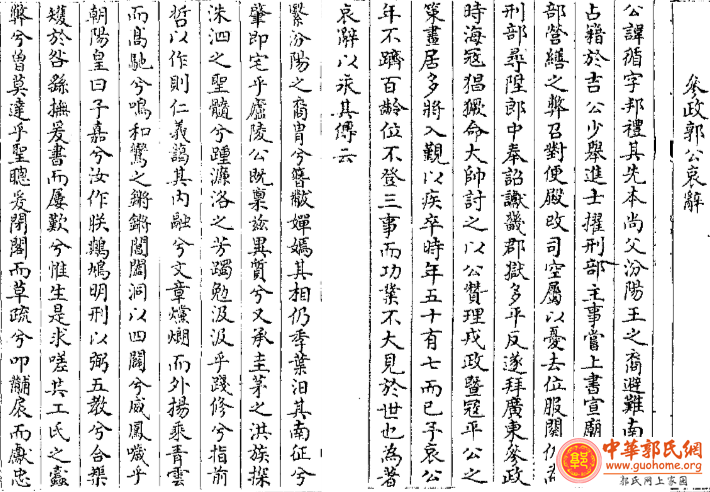 參政郭公哀辭
公諱循字邦禮其先本尚父汾陽王之裔避難南
占籍於吉公少舉進士擢刑部主事嘗上書宣廟
部營繕之弊召對便殿改司空屬以憂去位服闋仍
刑部尋陞郎中奉詔讞畿郡獄多平反遂拜廣東參政
時海冦猖獗命大帥討之以公贊理戎政暨冦平公之
策畫居多將入覲以疾卒時年五十有七而已予哀公
年不躋百齡位不登三事而功業不大見於世也為著
哀辭以永其傳云
繄汾陽之裔胄兮簪黻嬋嫣其相仍季葉汨其南征兮
肇即宅乎廬陵公既稟茲異質兮又承圭茅之洪族探
洙泗之聖髓兮踵濂洛之芳躅勉汲汲乎踐修兮指前
哲以作則仁義藹其內融兮文章爛爛而外揚乘青雲
而高馳兮鳴和鸞之鏘鏘閶闔洞以四闢兮威鳳噦乎
朝陽皇曰予嘉兮汝作朕鷞鳩明刑以弼五教兮合榘
矱於咎繇撫爰書而屢歎兮惟生是求嗟共工氏之蠹
弊兮曾莫達乎聖聰爰閉閣而草疏兮叩黼扆而獻忠
中華郭氏網
www.guohome.org
郭氏网上家园